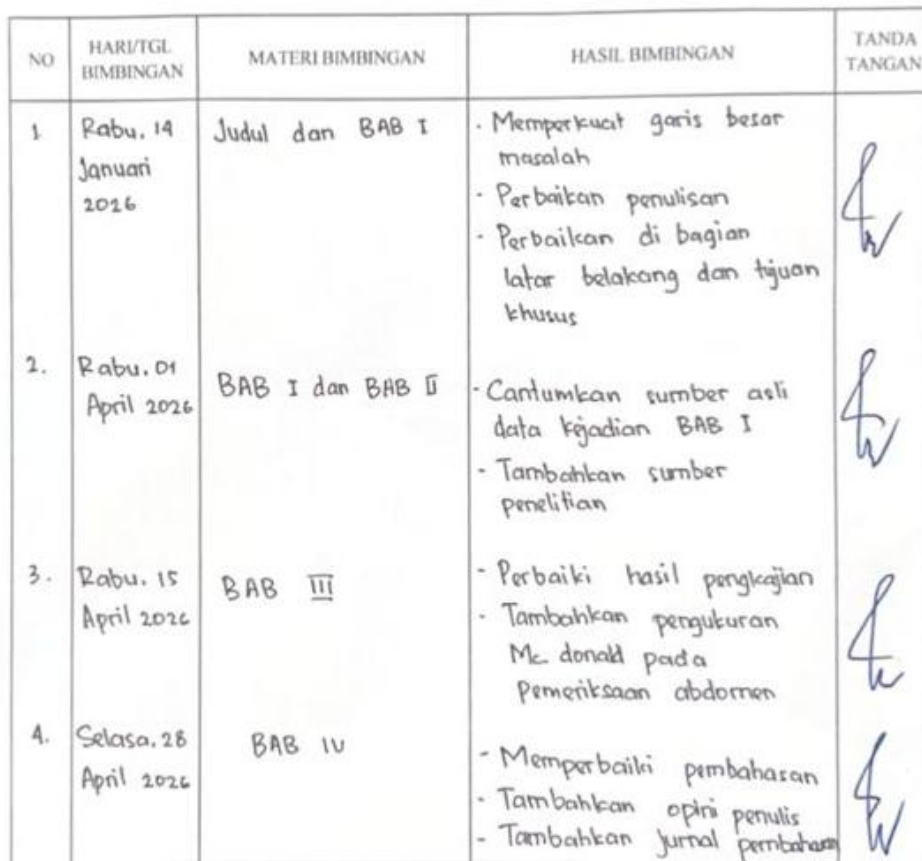 NO HARI/TGL BIMBINGAN MATERI BIMBINGAN HASIL BIMBINGAN TANDA TANGAN
1 Rabu, 14 Januari 2026
Judul dan BAB I
- Memperkuat garis besar
masalah
- Perbaikan penulisan
- Perbaikan di bagian
latar belakang dan tujuan
khusus
2. Rabu, 01
April 2026
BAB I dan BAB II
- Cantumkan sumber asli
data kejadian BAB I
- Tambahkan sumber
penelitian
3. Rabu, 15
April 2026
BAB III
- Perbaiki hasil pengkajian
- Tambahkan pengukuran
Mc. donald pada
pemeriksaan abdomen
4. Selasa, 28
April 2026
BAB IV
- Memperbaiki pembahasan
- Tambahkan opini penulis
- Tambahkan jurnal pembahasan